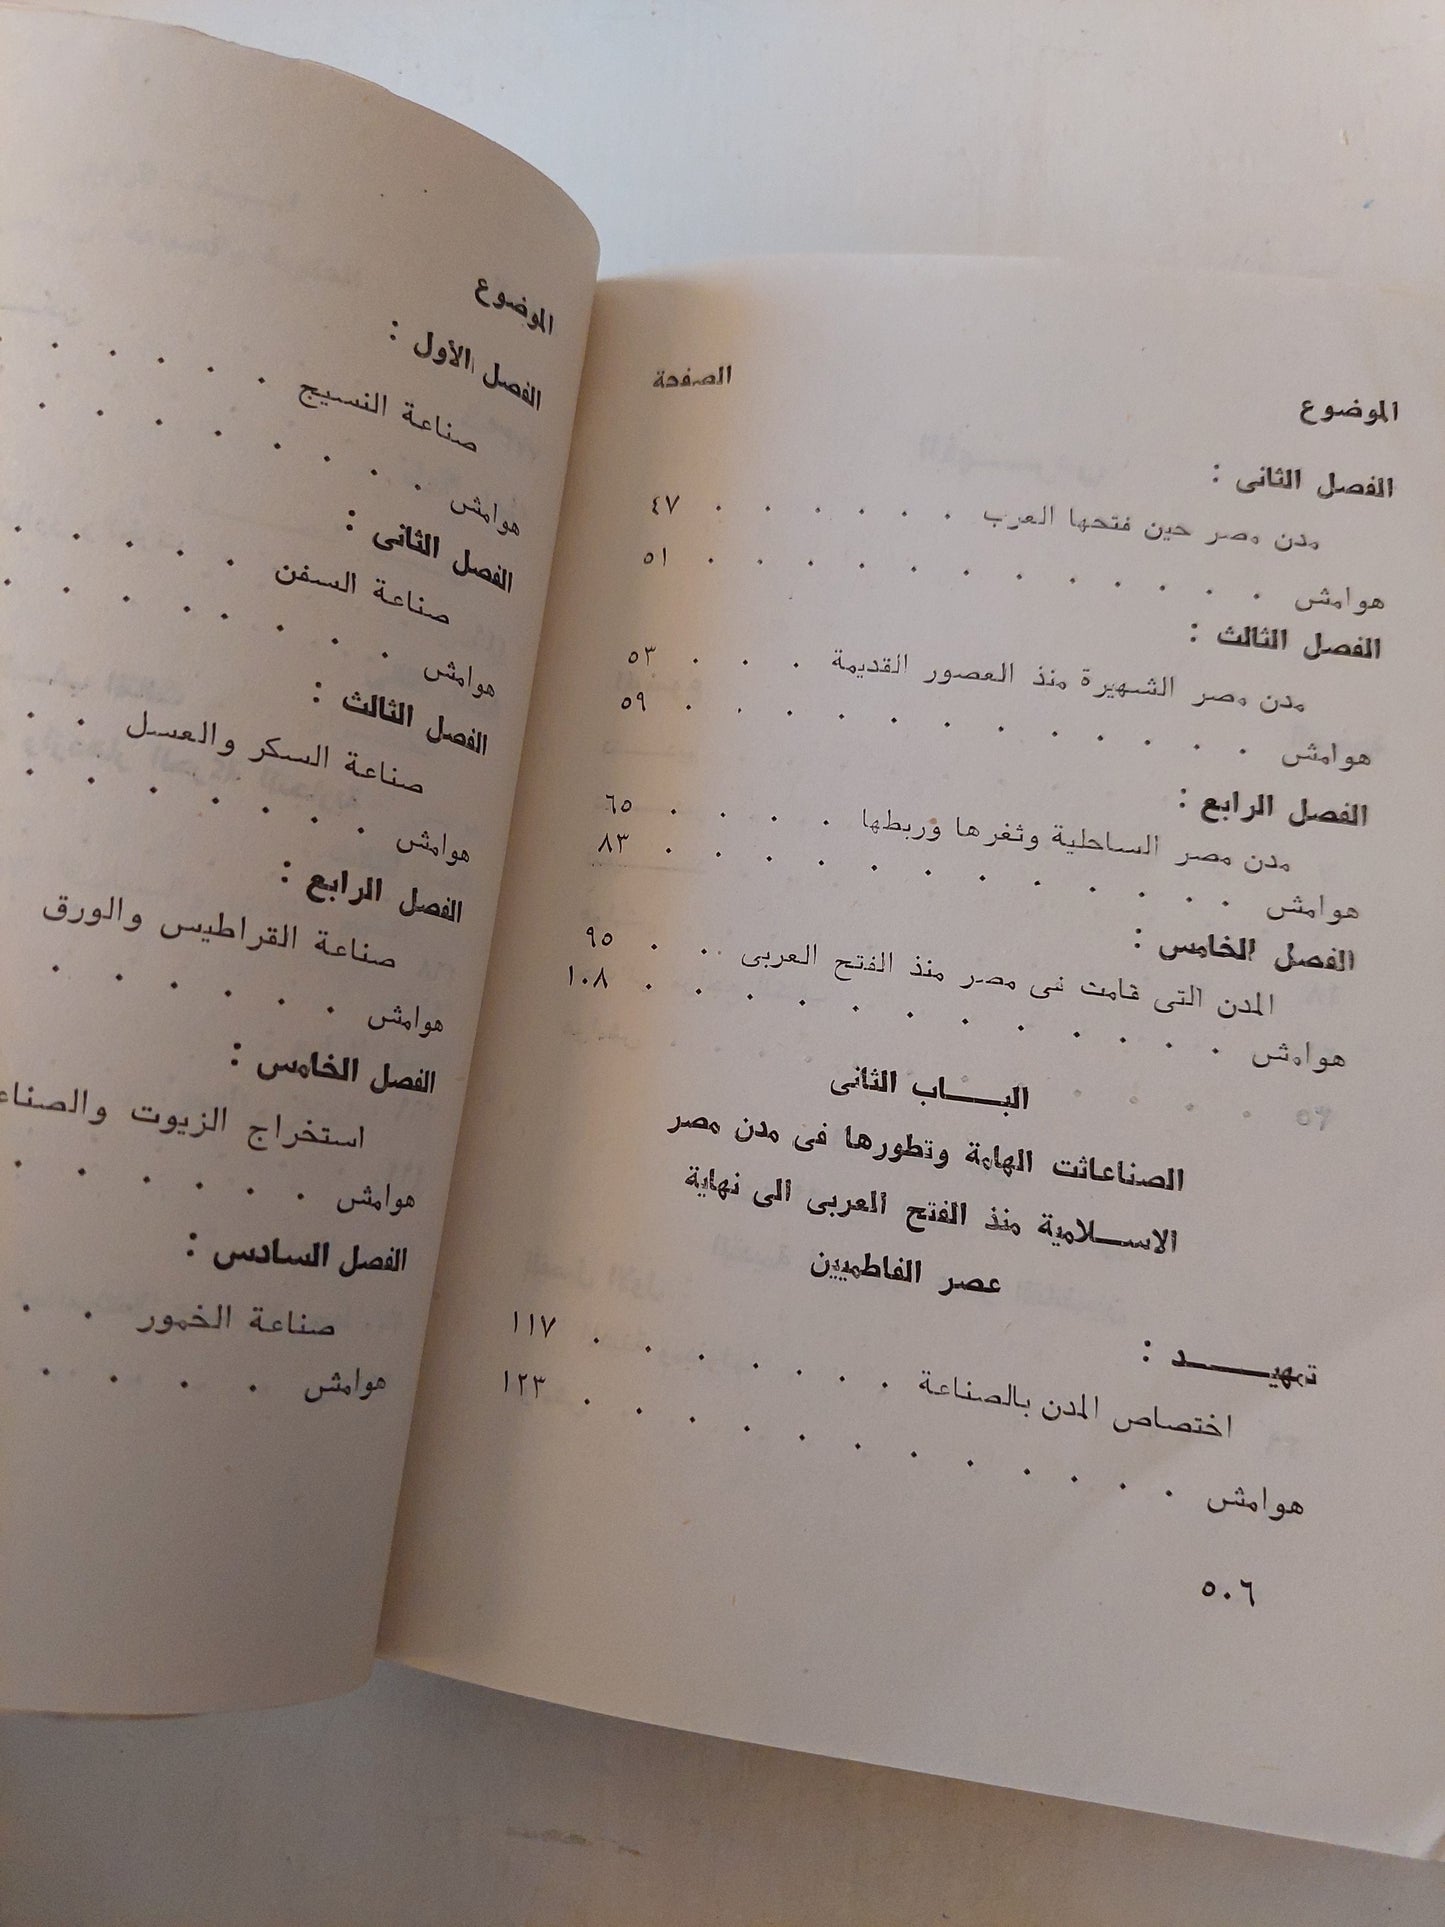 الموضوع الصفحة
الفصل الثانى :
مدن مصر حين فتحها العرب . . . . . . ٤٧
هوامش . . . . . . . . . . . . ٥١
الفصل الثالث :
مدن مصر الشهيرة منذ العصور القديمة . . . ٥٣
هوامش . . . . . . . . . . . . ٥٩
الفصل الرابع :
مدن مصر الساحلية وثغرها وربطها . . . . ٦٥
هوامش . . . . . . . . . . . . ٨٣
الفصل الخامس :
المدن التى قامت فى مصر منذ الفتح العربى . . . ٩٥
هوامش . . . . . . . . . . . . ١٠٨
البـــاب الثانى
الصناعاثت الهامة وتطورها فى مدن مصر
الاســلامية منذ الفتح العربى الى نهاية
عصر الفاطميين
تمهيـــــد :
اختصاص المدن بالصناعة . . . . . . . ١١٧
هوامش . . . . . . . . . . . . ١٢٣
٥٠٦
الموضوع
الفصل الأول :
صناعة النسيج . . . . . .
هوامش . . . . . . . .
الفصل الثانى :
صناعة السفن . . . . .
هوامش . . . . . . . .
الفصل الثالث :
صناعة السكر والعسل . .
هوامش . . . . . . .
الفصل الرابع :
صناعة القراطيس والورق
هوامش . . . . . .
الفصل الخامس :
استخراج الزيوت
هوامش . . . . . .
الفصل السادس :
صناعة الخمور . .
هوامش . . . .